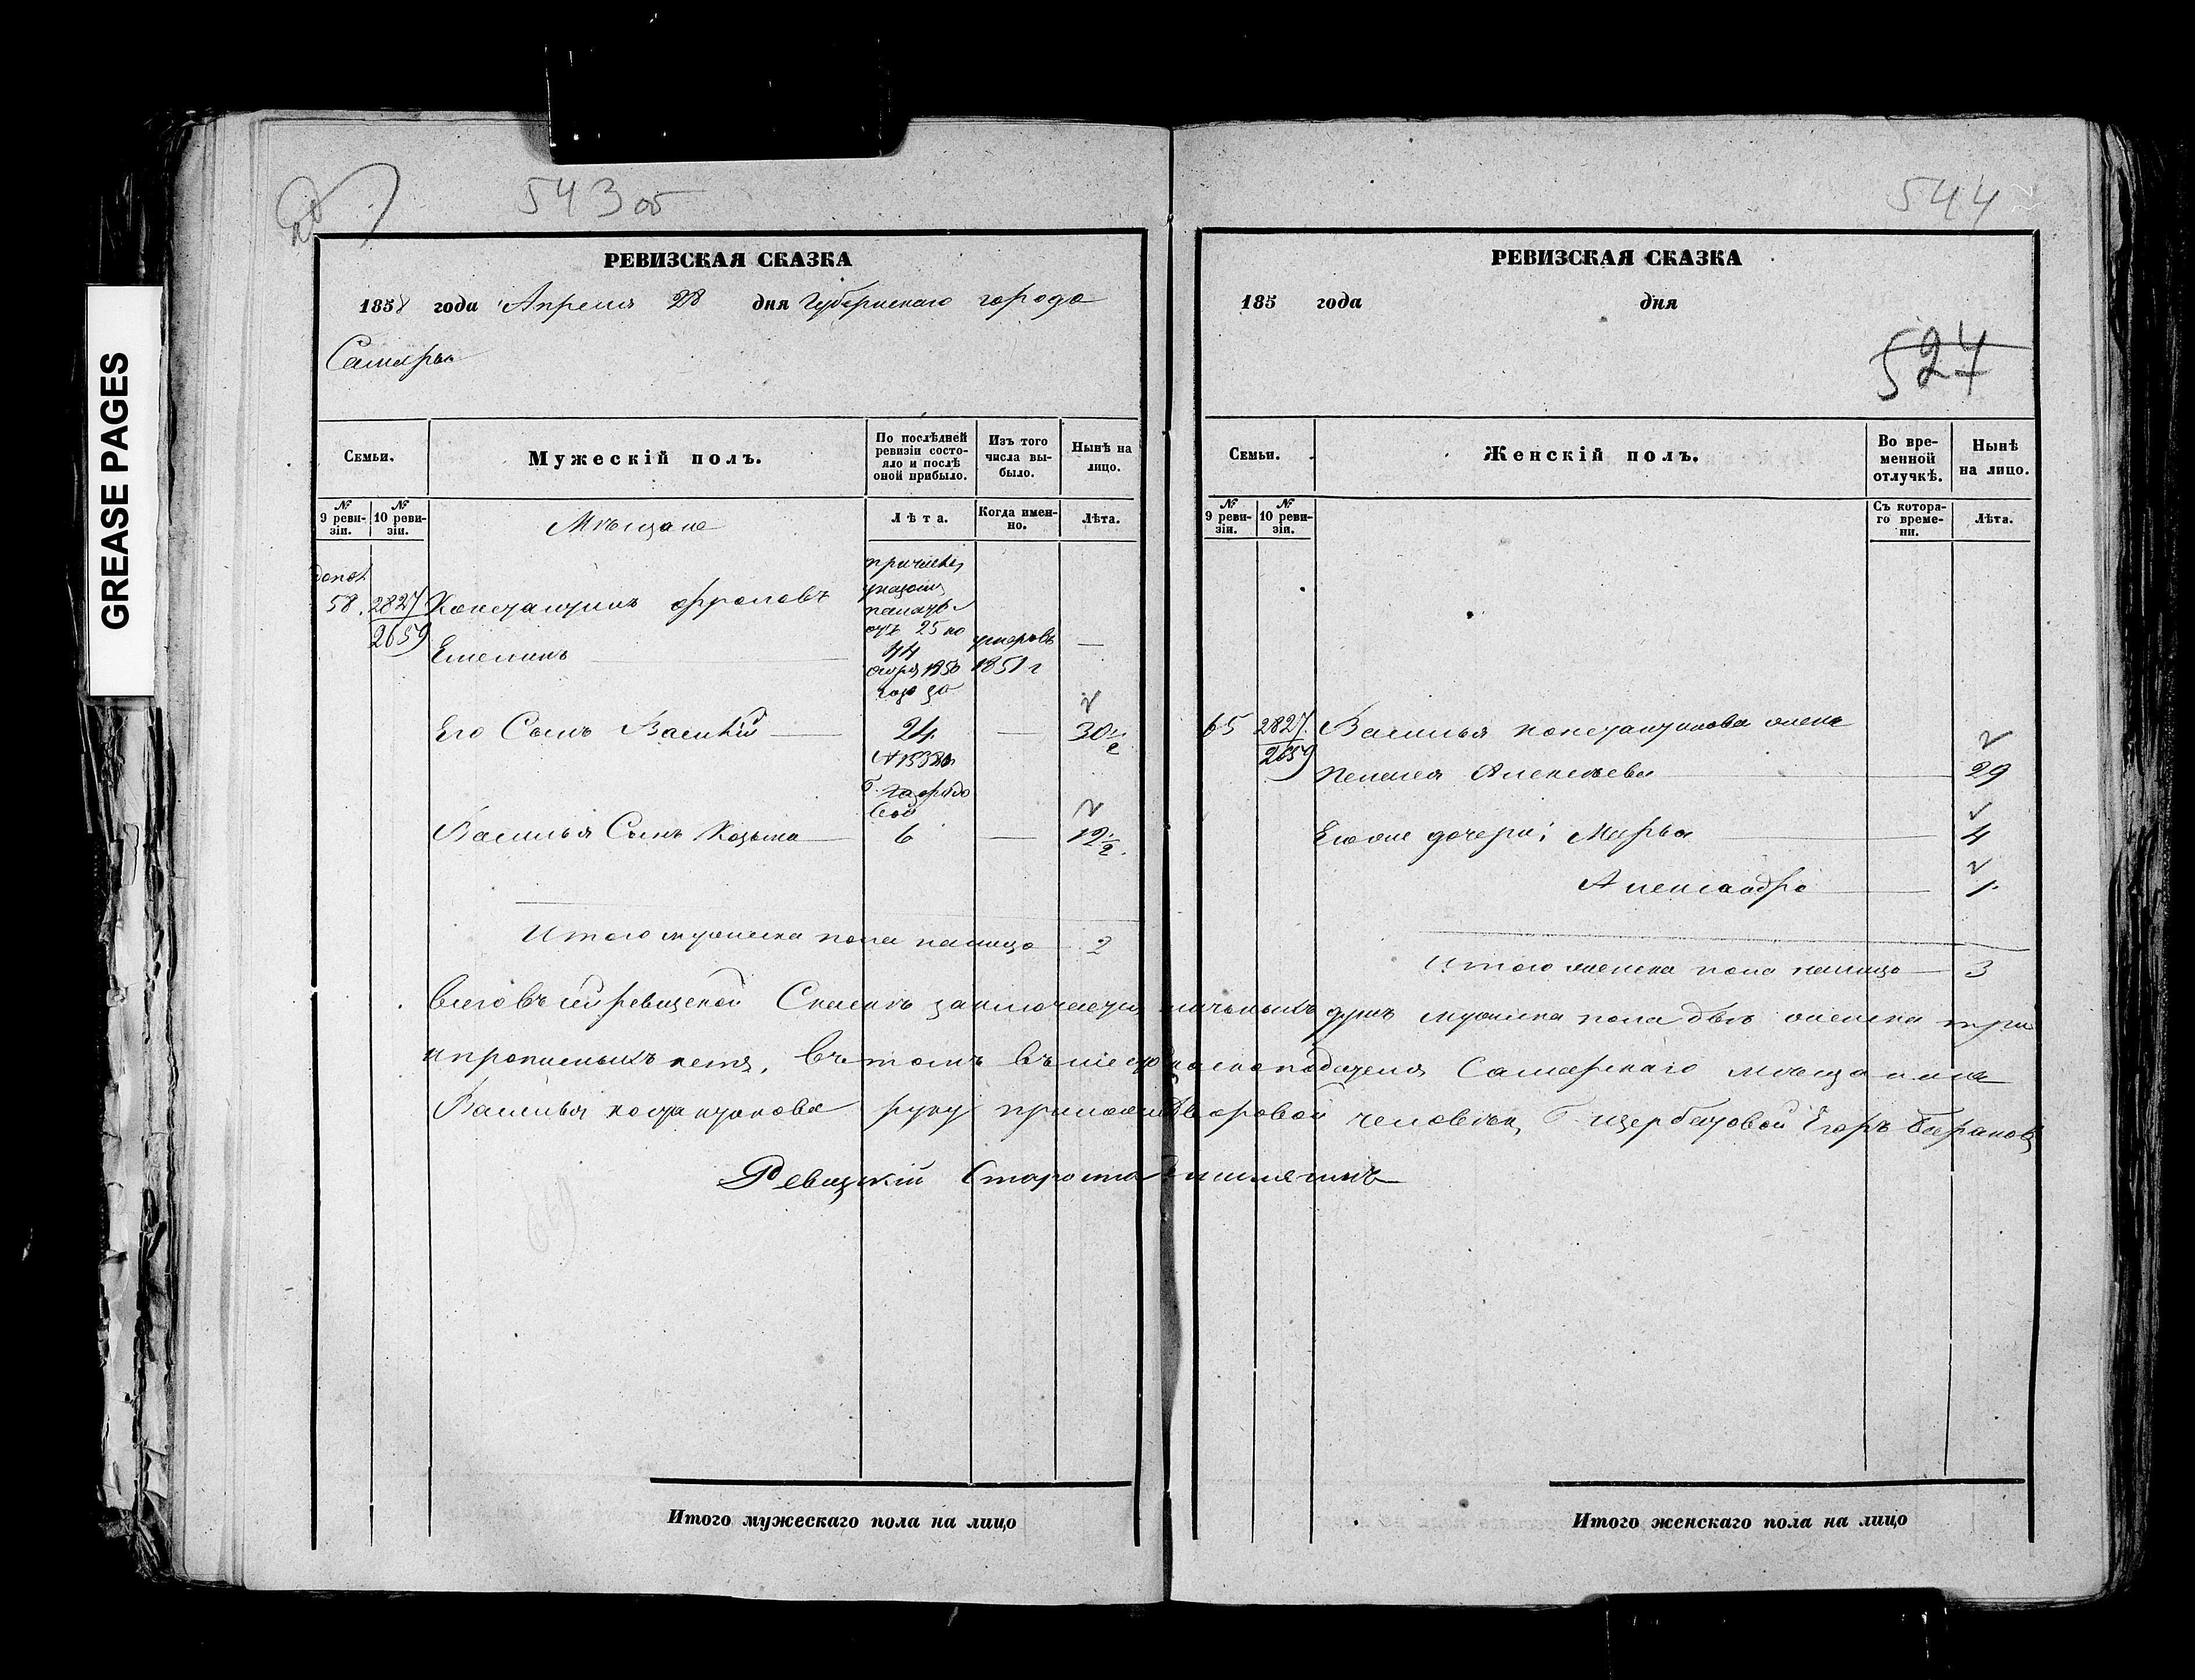 GREASE PAGES
543 об
РЕВИЗСКАЯ СКАЗКА
1858 года Апреля 28 дня Губернскаго города
Самары
Семьи.
Мужескій полъ.
По послѣдней ревизіи состояло и послѣ оной прибыло.
Изъ того числа выбыло.
Нынѣ на лицо.
№ 9 ревизіи.
№ 10 ревизіи.
Мѣщане
Лѣта.
Когда именно.
Лѣта.
допол
58. 2827 Константинъ Фроловъ
2659
44 умеръ въ 1851 г —
от 25 но
1850
Его Сынъ Василій — 24 — 30 1/2
Василья Сынъ Козьма — 6 — 12 1/2
Итого мужеска пола налицо 2
544
РЕВИЗСКАЯ СКАЗКА
185 года дня
524
Семьи.
Женскій полъ.
Во временной отлучкѣ.
Нынѣ на лицо.
№ 9 ревизіи.
№ 10 ревизіи.
Съ котораго времени.
Лѣта.
65 2827 Василья Константинова жена
2659 Пелагея Алексѣева 29
Ево же дочери: Марья 4
Александра 1
Итого женска пола налицо 3
Всего въ сей ревизской Сказкѣ заключается наличныхъ душъ мужска пола двѣ женска три
и прописныхъ нетъ, въ томъ вместо подателя Самарскаго мѣщанина
Василья Константинова руку приложилъ дворовой человекъ Г. Щербатовой Егоръ Барановъ
Ревизскій Староста
Итого мужескаго пола на лицо
Итого женскаго пола на лицо